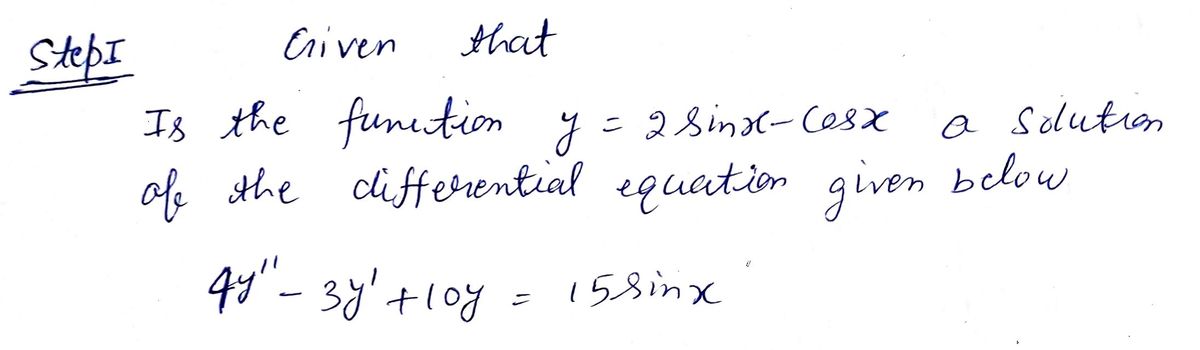 Step I Given that
Is the function y = 2 sinx - cosx a solution
of the differential equation given below
4y'' - 3y' + 10y = 15 sinx